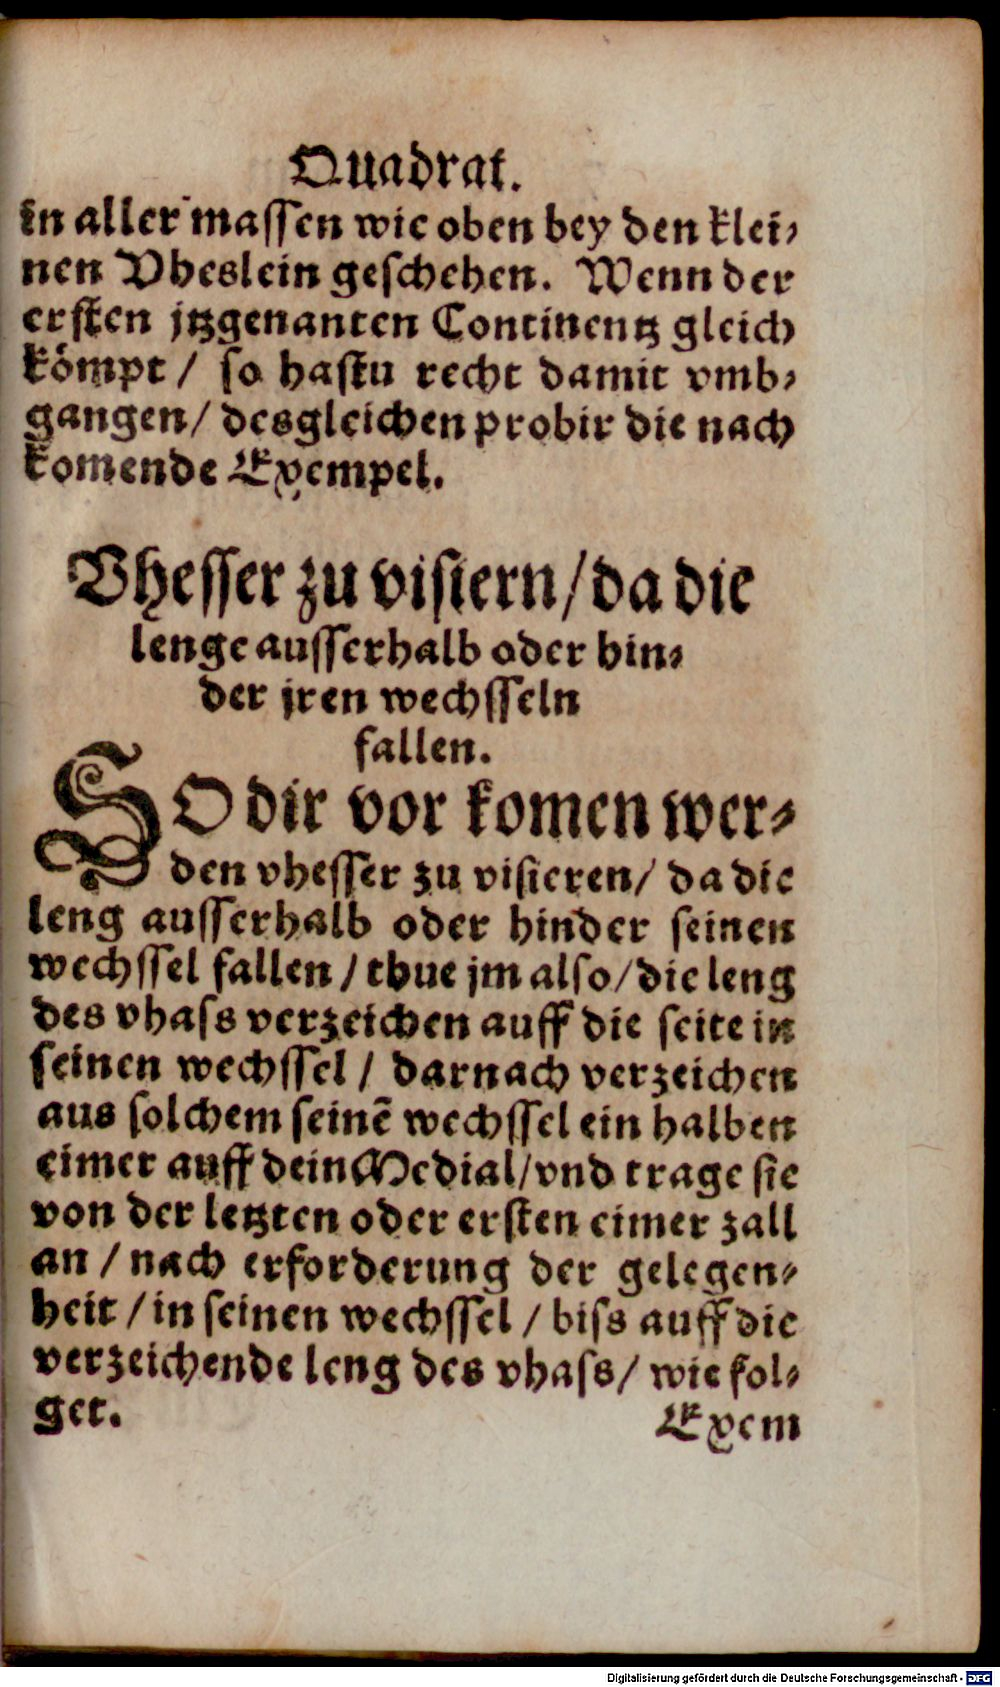 Quadrat.
in aller massen wie oben bey den klei-
nen Vheslein geschehen. Wenn der
ersten jtzgenanten Continentz gleich
kömpt / so hastu recht damit vmb-
gangen / desgleichen probir die nach
komende Exempel.
Vhesser zu visiern / da die
lenge ausserhalb oder hin-
der jren wechsseln
fallen.
SO dir vor komen wer-
den vhesser zu visieren / da die
leng ausserhalb oder hinder seinen
wechssel fallen / thue jm also / die leng
des vhass verzeichen auff die seite in
seinen wechssel / darnach verzeichen
aus solchem seinē wechssel ein halben
eimer auff dein Medial / vnd trage sie
von der letzten oder ersten eimer zall
an / nach erforderung der gelegen-
heit / in seinen wechssel / biss auff die
verzeichende leng des vhass / wie fol-
get.
Exem
Digitalisierung gefördert durch die Deutsche Forschungsgemeinschaft - DFG